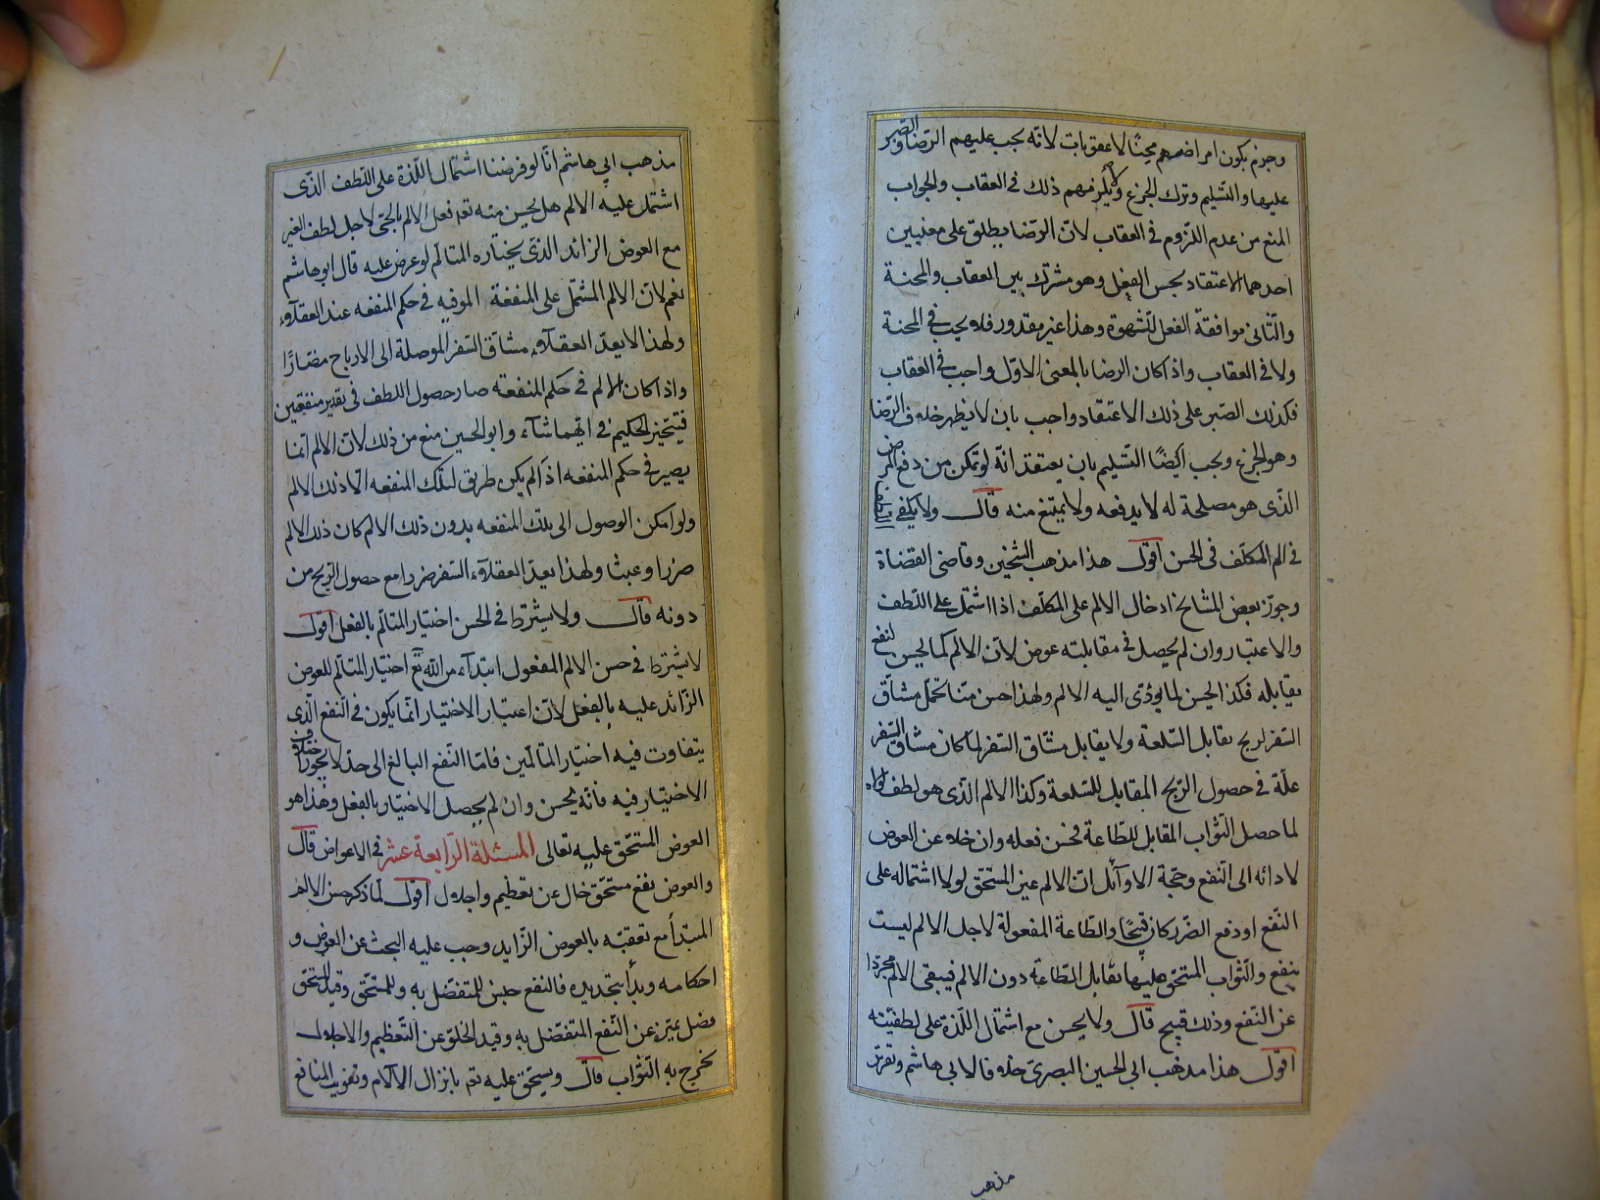 وجزم بكون امراضهم محنًا لا عقوبات لانّه يجب عليهم الرّضا والصّبر
عليها والتّسليم وترك الجزع ولا يلزمهم ذلك فى العقاب والجواب
المنع من عدم اللّزوم فى العقاب لانّ الرّضا يطلق على معنيين
احدهما الاعتقاد بحسن الفعل وهو مشترك بين العقاب والمحنة
والثّانى موافقة الفعل للشّهوة وهذا غير مقدور فلا يجب فى المحنة
ولا فى العقاب واذا كان الرضا بالمعنى الاوّل واجب فى العقاب
فكذلك الصّبر على ذلك الاعتقاد واجب بان لا يظهر خلاف الرّضا
وهو الجزع ويجب ايضًا التّسليم بان يعتقد انّه لو تمكن من دفع المرض
الّذى هو مصلحة له لا يدفعه ولا يمتنع منه قال ولا يكفى اللطف
فى الم المكلّف فى الحسن اقول هذا مذهب الشّيخين وقاضى القضاة
وجوّز بعض المشايخ ادخال الالم على المكلّف اذا اشتمل على اللّطف
والاعتبار وان لم يحصل فى مقابلته عوض لانّ الالم كما يحسن لنفع
يقابله فكذا يحسن لما يودّى اليه الالم ولهذا حسن منّا تحمّل مشاقّ
السّفر لربح يقابل السّلعة ولا يقابل مشاق السّفر لما كان مشاق السّفر
علّة فى حصول الرّبح المقابل للسّلعة وكذا الالم الّذى هو لطف لولاه
لما حصل الثّواب المقابل للطّاعة فحسن فعله وان خلا عن العوض
لادائه الى النّفع وحجّة الاوائل انّ الالم غير المستحق لولا اشتماله على
النّفع او دفع الضّرر كان قبيحًا والطّاعة المفعولة لاجل الالم ليست
بنفع والثّواب المستحق عليها يقابل الطّاعة دون الالم فيبقى الالم مجرّدا
عن النّفع وذلك قبيح قال ولا يحسن مع اشتمال اللّذة على لطفيّته
اقول هذا مذهب ابى الحسين البصرى خلافا لابى هاشم وتقرير
مذهب
مذهب ابى هاشم انّا لو فرضنا اشتمال اللّذة على اللّطف الّذى
اشتمل عليه الالم هل يحسن منه تع فعل الالم بالحىّ لاجل لطف الغير
مع العوض الزائد الذى يختاره المتالّم لو عرض عليه قال ابو هاشم
نعم لانّ الالم المشتمل على المنفعة الموفيه فى حكم المنفعه عند العقلاء
ولهذا لا يعدّ العقلاء مشاق السّفر الموصلة الى الارباح مضارًا
واذا كان الالم فى حكم المنفعه صار حصول اللطف فى تقدير منفعتين
فيتخيّر الحكيم فى ايّهما شاء وابو الحسين منع من ذلك لانّ الالم انّما
يصير فى حكم المنفعه اذا لم يكن طريق لتلك المنفعه الّا ذلك الالم
ولو امكن الوصول الى تلك المنفعه بدون ذلك الالم كان ذلك الالم
ضررا وعبثا ولهذا يعدّ العقلاء السّفر ضررا مع حصول الرّبح من
دونه قال ولا يشترط فى الحسن اختيار المتالّم بالفعل اقول
لا يشترط فى حسن الالم المفعول ابتداء من اللّه تع اختيار المتالّم للعوض
الزّائد عليه بالفعل لانّ اعتبار الاختيار انّما يكون فى النّفع الّذى
يتفاوت فيه اختيار المتالّمين فامّا النّفع البالغ الى حدّ لا يجوز اختلاف
الاختيار فيه فانّه يحسن وان لم يحصل الاختيار بالفعل وهذا هو
العوض المستحق عليه تعالى المسئلة الرّابعة عشر فى الاعواض قال
والعوض نفع مستحق خال عن تعظيم واجلال اقول لمّا ذكر حسن الالم
المبتدأ مع تعقبّه بالعوض الزّايد وجب عليه البحث عن العوض و
احكامه وبدأ بتحديده فالنفع جنس للمتفضّل به وللمستحق وقيد المستحق
فصل يميّزه عن النّفع المتفضّل به وقيد الخلّو عن التّعظيم والاجلال
يخرج به الثّواب قال ويستحق عليه تع بانزال الآلام وتفويت المنافع